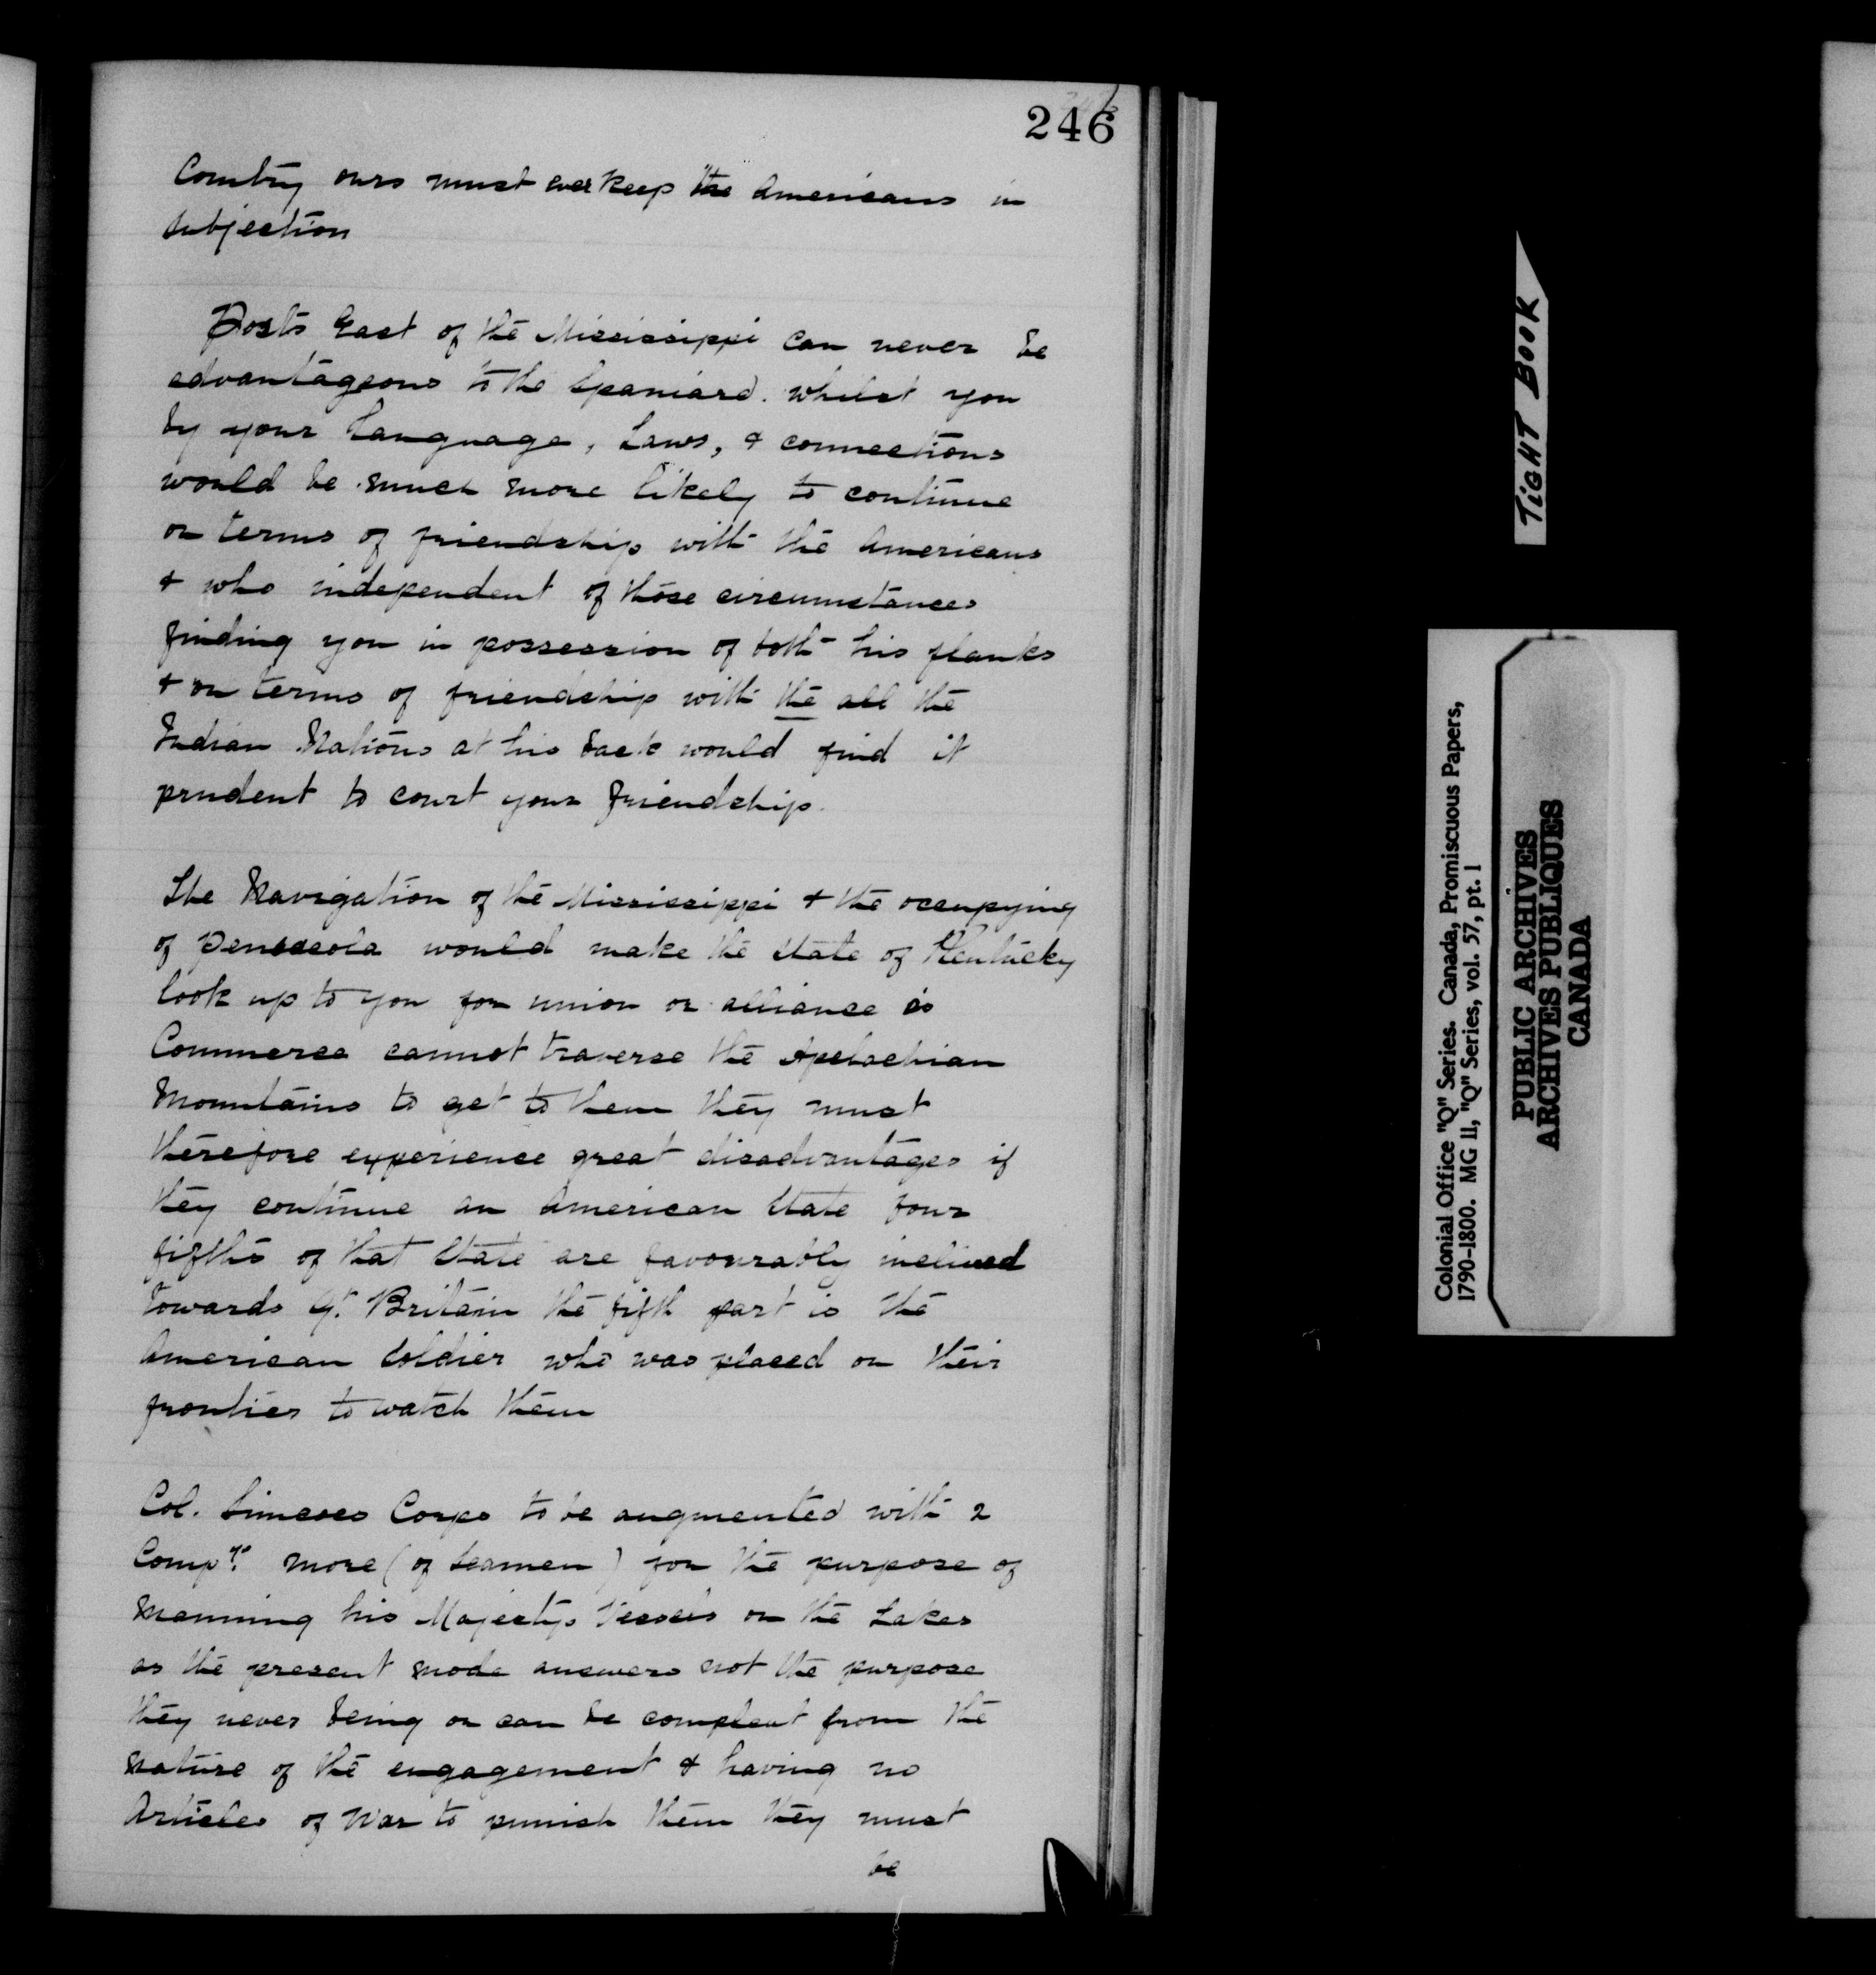 246
Country ours must ever keep the Americans in
subjection
Posts East of the Mississippi can never be
advantageous to the Spaniard. whilst you
by your Language, Laws, & connections
would be much more likely to continue
on terms of friendship with the Americans
& who independent of those circumstances
finding you in possession of both his flanks
& on terms of friendship with the all the
Indian Nations at his back would find it
prudent to court your friendship.
The Navigation of the Mississippi & the occupying
of Pensacola would make the State of Kentucky
look up to you for union or alliance as
Commerce cannot traverse the Apelachian
Mountains to get to them they must
therefore experience great disadvantages if
they continue an American State four
fifths of that State are favourably inclined
towards Gt. Britain the fifth part is the
American Soldier who was placed on their
frontier to watch them
Col. Simcoes Corps to be augmented with 2
Compys. more (of Seamen) for the purpose of
Manning his Majestys Vessels on the Lakes
as the present mode answers not the purpose
they never being or can be compleat from the
nature of the engagement & having no
Articles of War to punish them they must
be
TIGHT BOOK
Colonial Office "Q" Series. Canada, Promiscuous Papers,
1790-1800. MG 11, "Q" Series, vol. 57, pt. 1
PUBLIC ARCHIVES
ARCHIVES PUBLIQUES
CANADA